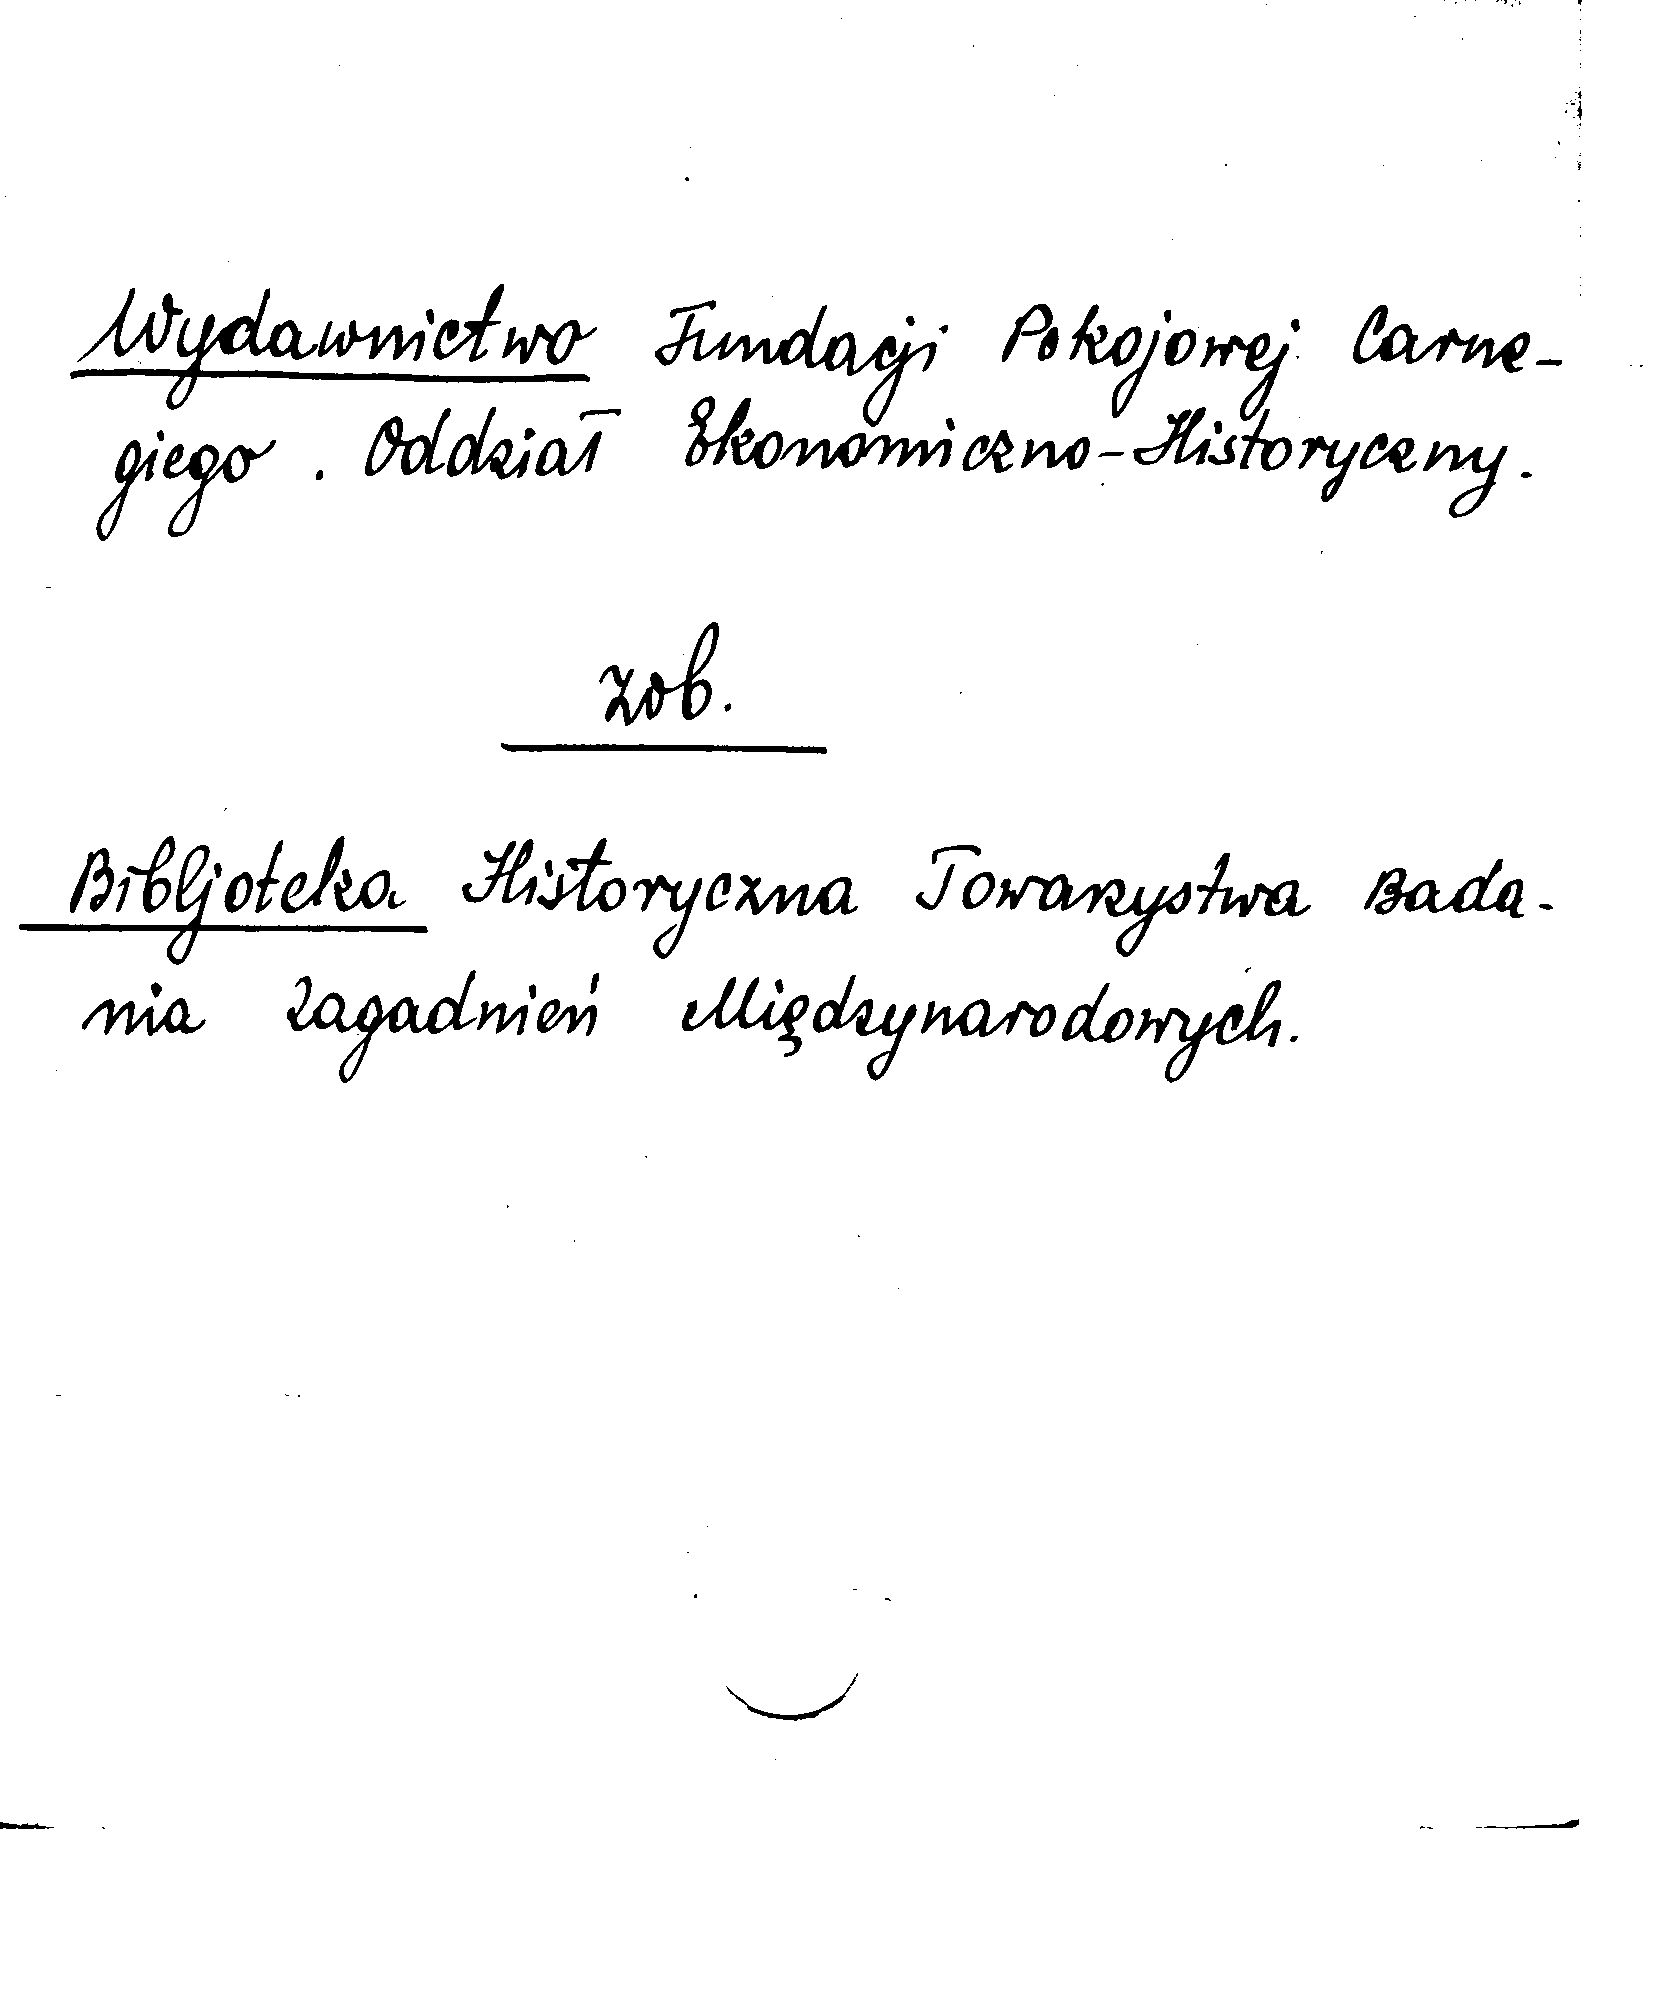 Wydawnictwo Fundacji Pokojowej Carne-
giego. Oddział Ekonomiczno-Historyczny.
zob.
Bibljoteka Historyczna Towarzystwa Bada-
nia Zagadnień Międzynarodowych.